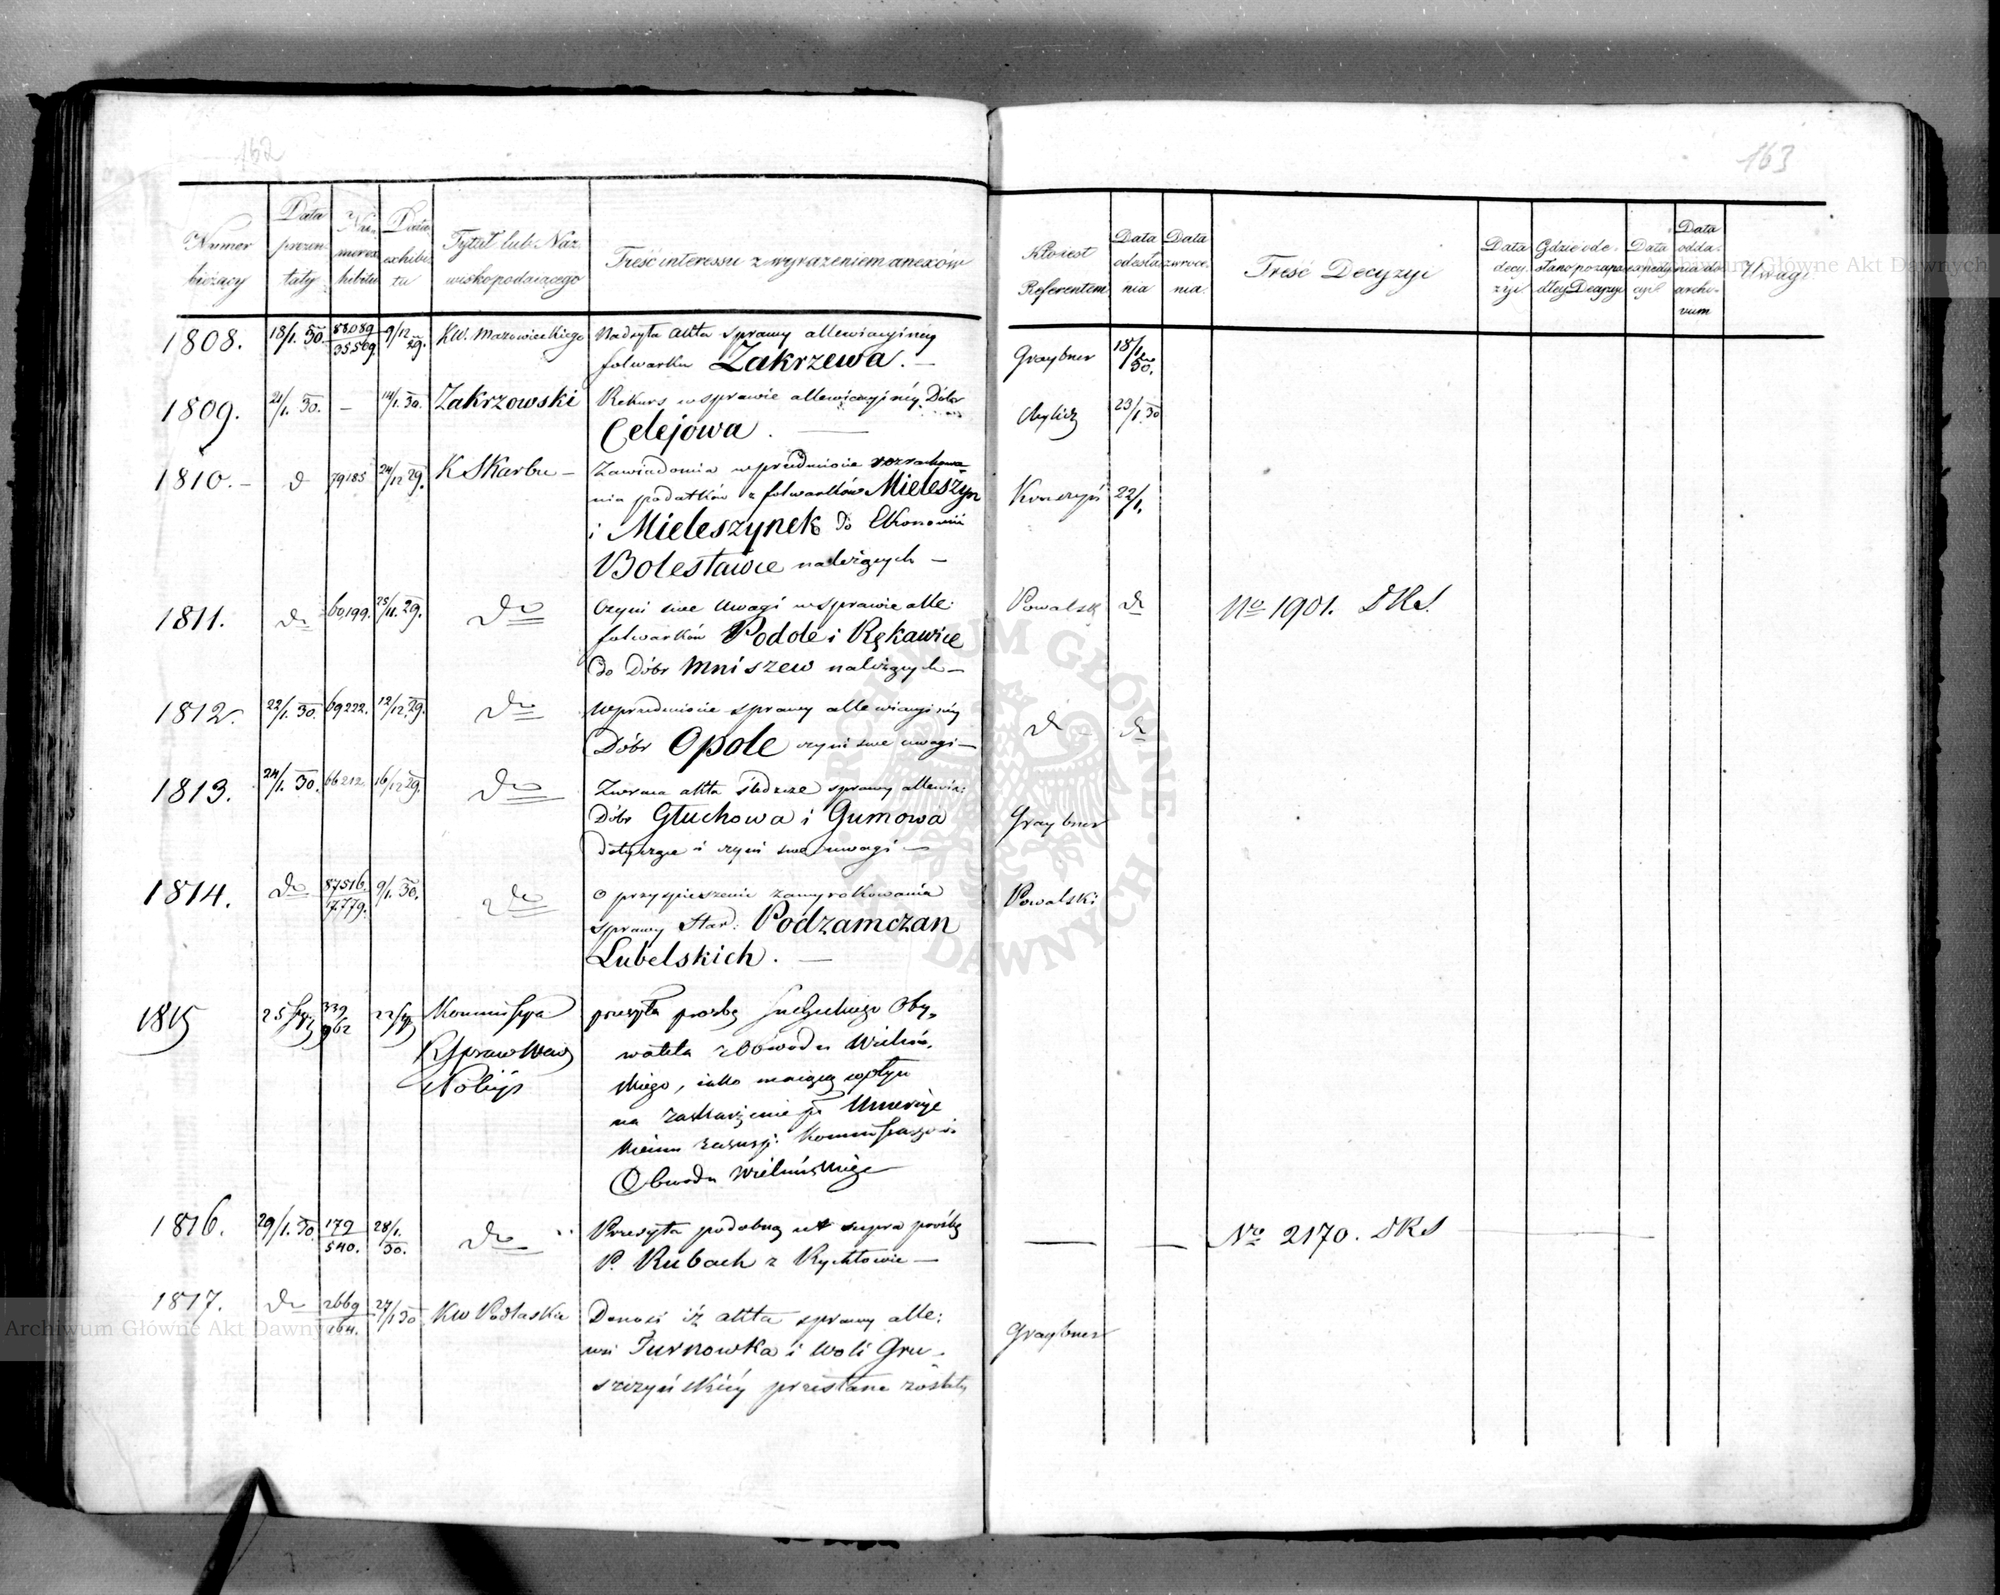 162
163
Numer bieżący
Data prezentaty
Numer exhibitu
Data exhibitu
Tytuł lub Nazwisko podaiącego
Treść interessu z wyrażeniem anexów
Kto iest Referentem
Data odesłania
Data zwrócenia.
Treść Decyzyi
Data decyzyi
Gdzie odesłano po zapadłey Decyzyi
Data expedycyi
Data oddania do archivum
Uwagi
1808. 18/1. 30. 88089/35569 9/12 29. KW. Mazowieckiego Nadsyła akta sprawy allewiacyjnéy
folwarku Zakrzewa. — Graybner 18/1 30.
1809. 21/1. 30. — 14/1. 30. Zakrzowski Rekurs w sprawie allewiacyjnéy Dóbr
Celejówa. — 23/1 30
1810. — d 79185 24/12 29. K Skarbu — Zawiadomia w przedmiocie rozrachowa-
nia podatków z folwarków Mieleszyn 22/1.
i Mieleszynek do Ekonomii
Bolesławice należących —
1811. do 60,199. 25/11. 29. do Czyni swe uwagi w sprawie alle: Powalsk do No 1901. DKS.
folwarków Podole i Rękawice
do Dóbr Mniszew należących —
1812. 22/1. 30. 69222. 12/12. 29. do W przedmiocie sprawy allewiacyjnéy
Dóbr Opole czyni swe uwagi — do — do
1813. 24/1. 30. 66212. 16/12 29. do Zwraca akta śledcze sprawy allewia:
Dóbr Głuchowa i Gumowa Graybner
dotyczące i czyni swe uwagi —
1814. do 87516./17779. 9/1. 30. do O przyspieszenie zawyrokowania Powalski
sprawy Star: Podzamczan
Lubelskich. —
1815 25 339/962 22 Kommissya przesyła prozbę Oby-
R Spraw Wew watela z Obwodu Wieluń-
i Policyi skiego, iako maiącą wpływ
na zaskarżenie
Kommissarzowi
Obwodu Wieluńskiego
1816. 29/1. 30. 179/540. 28/1. 30. do Przesyła podobną ut supra prośbę — — No 2170. DKS —
P. Rubach z Rychłowie —
1817. do 2669/164. 27/1 30 KW Podlaska Donosi iż akta sprawy alle: Graybner
wsi Turnowka i Woli Gru-
szczyńskiéy przesłane zostały
ARCHIWUM GŁÓWNE AKT DAWNYCH
Archiwum Główne Akt Dawnych
Archiwum Główne Akt Dawnych